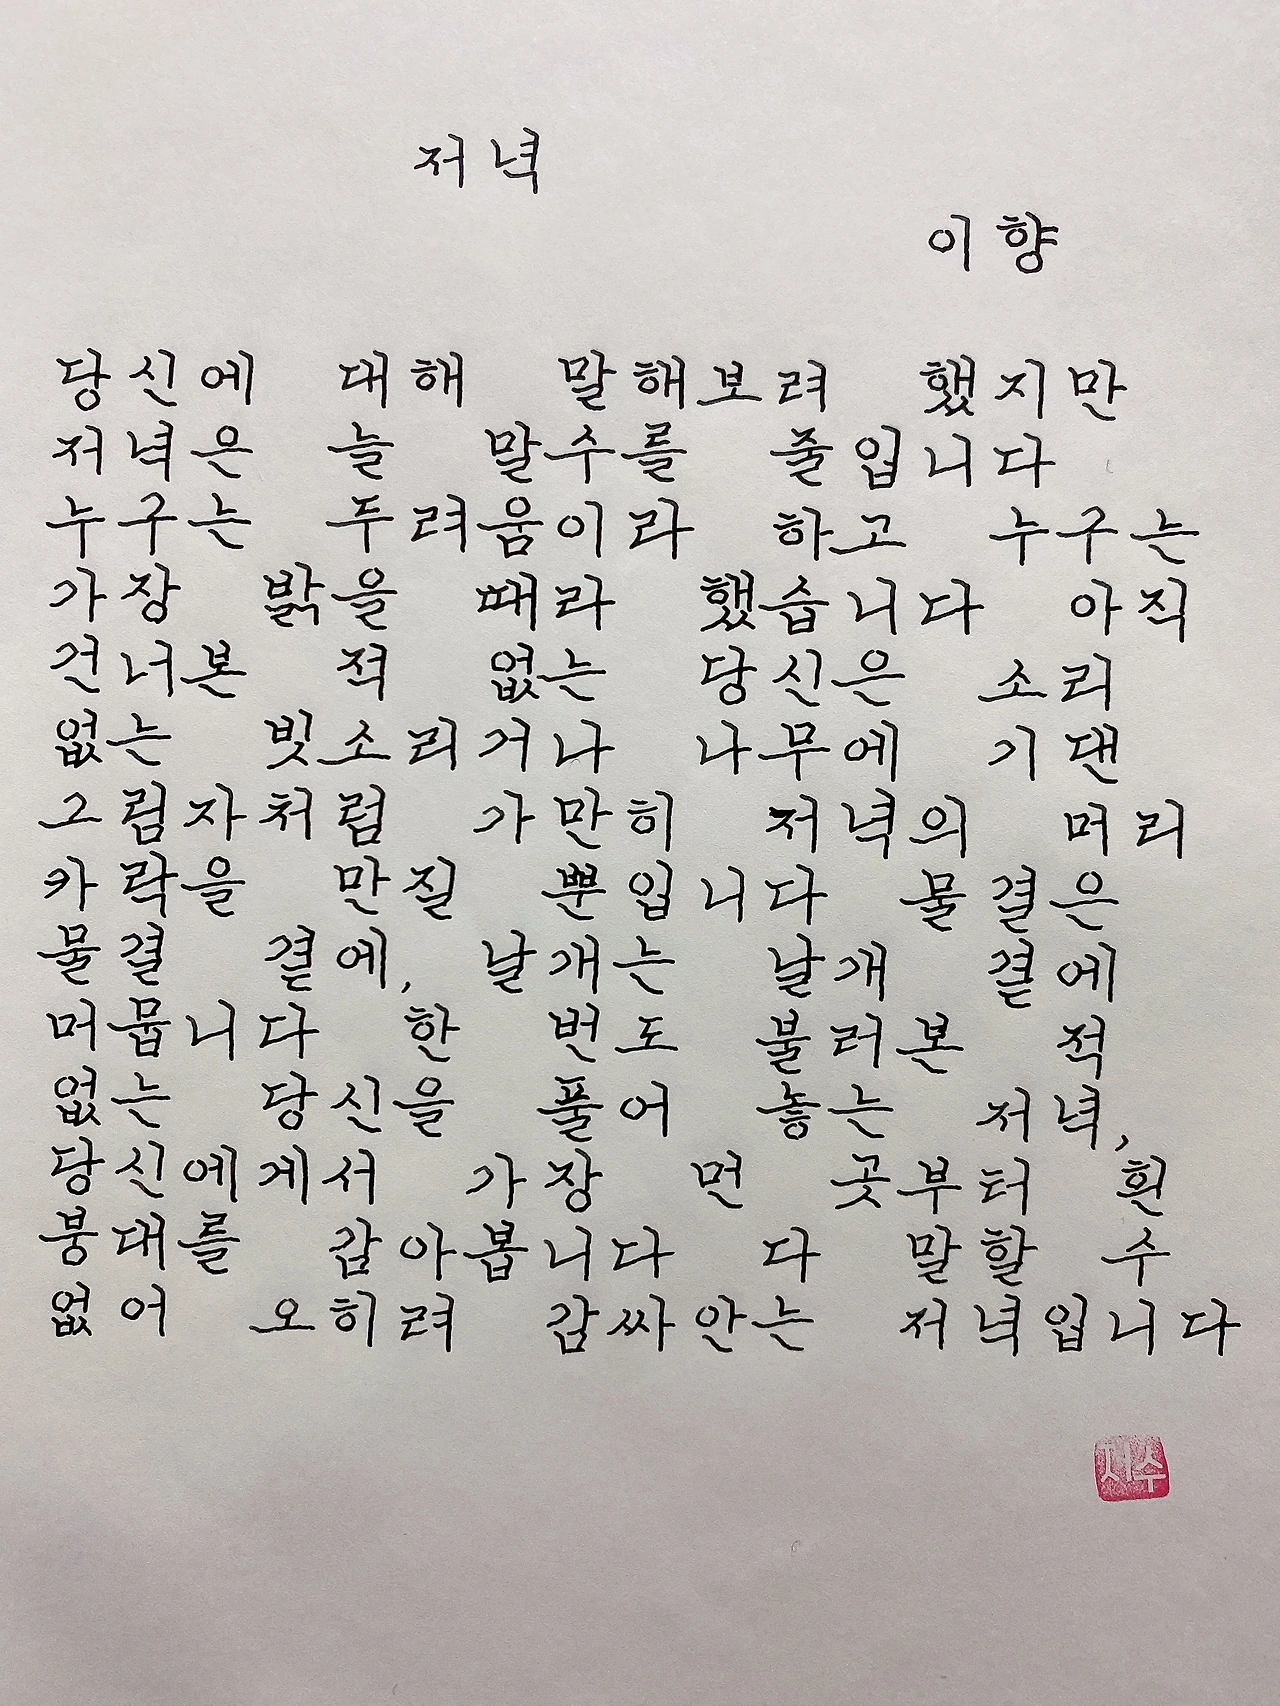 저녁
이향
당신에 대해 말해보려 했지만
저녁은 늘 말수를 줄입니다
누구는 두려움이라 하고 누구는
가장 밝을 때라 했습니다 아직
건너본 적 없는 당신은 소리
없는 빗소리거나 나무에 기댄
그림자처럼 가만히 저녁의 머리
카락을 만질 뿐입니다 물결은
물결 곁에, 날개는 날개 곁에
머뭅니다 한 번도 불러본 적
없는 당신을 풀어 놓는 저녁,
당신에게서 가장 먼 곳부터 흰
붕대를 감아봅니다 다 말할 수
없어 오히려 감싸안는 저녁입니다